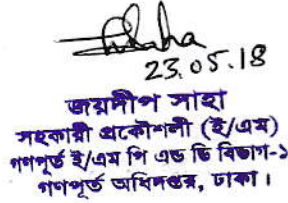 23.05.18
জয়দীপ সাহা
সহকারী প্রকৌশলী (ই/এম)
গণপূর্ত ই/এম পি এন্ড ডি বিভাগ-১
গণপূর্ত অধিদপ্তর, ঢাকা।